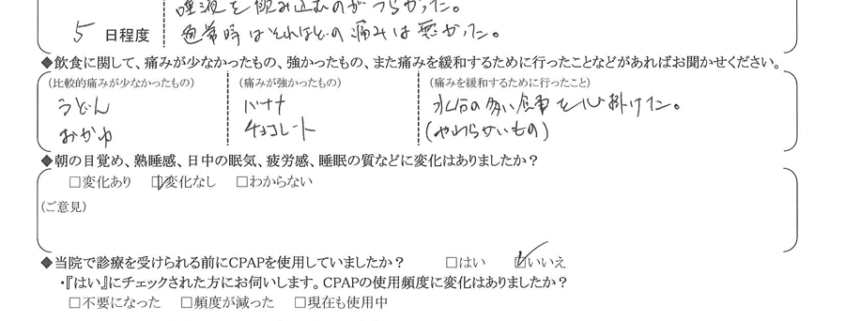 唾液を飲み込むのがつらかった。
5 日程度 通常時はそれほどの痛みは無かった。
◆飲食に関して、痛みが少なかったもの、強かったもの、また痛みを緩和するために行ったことなどがあればお聞かせください。
(比較的痛みが少なかったもの) (痛みが強かったもの) (痛みを緩和するために行ったこと)
うどん バナナ 水分の多い食事を心掛けた。
おかゆ チョコレート (やわらかいもの)
◆朝の目覚め、熟睡感、日中の眠気、疲労感、睡眠の質などに変化はありましたか？
□変化あり ☑変化なし □わからない
(ご意見)
◆当院で診療を受けられる前にCPAPを使用していましたか？ □はい ☑いいえ
・『はい』にチェックされた方にお伺いします。CPAPの使用頻度に変化はありましたか？
□不要になった □頻度が減った □現在も使用中